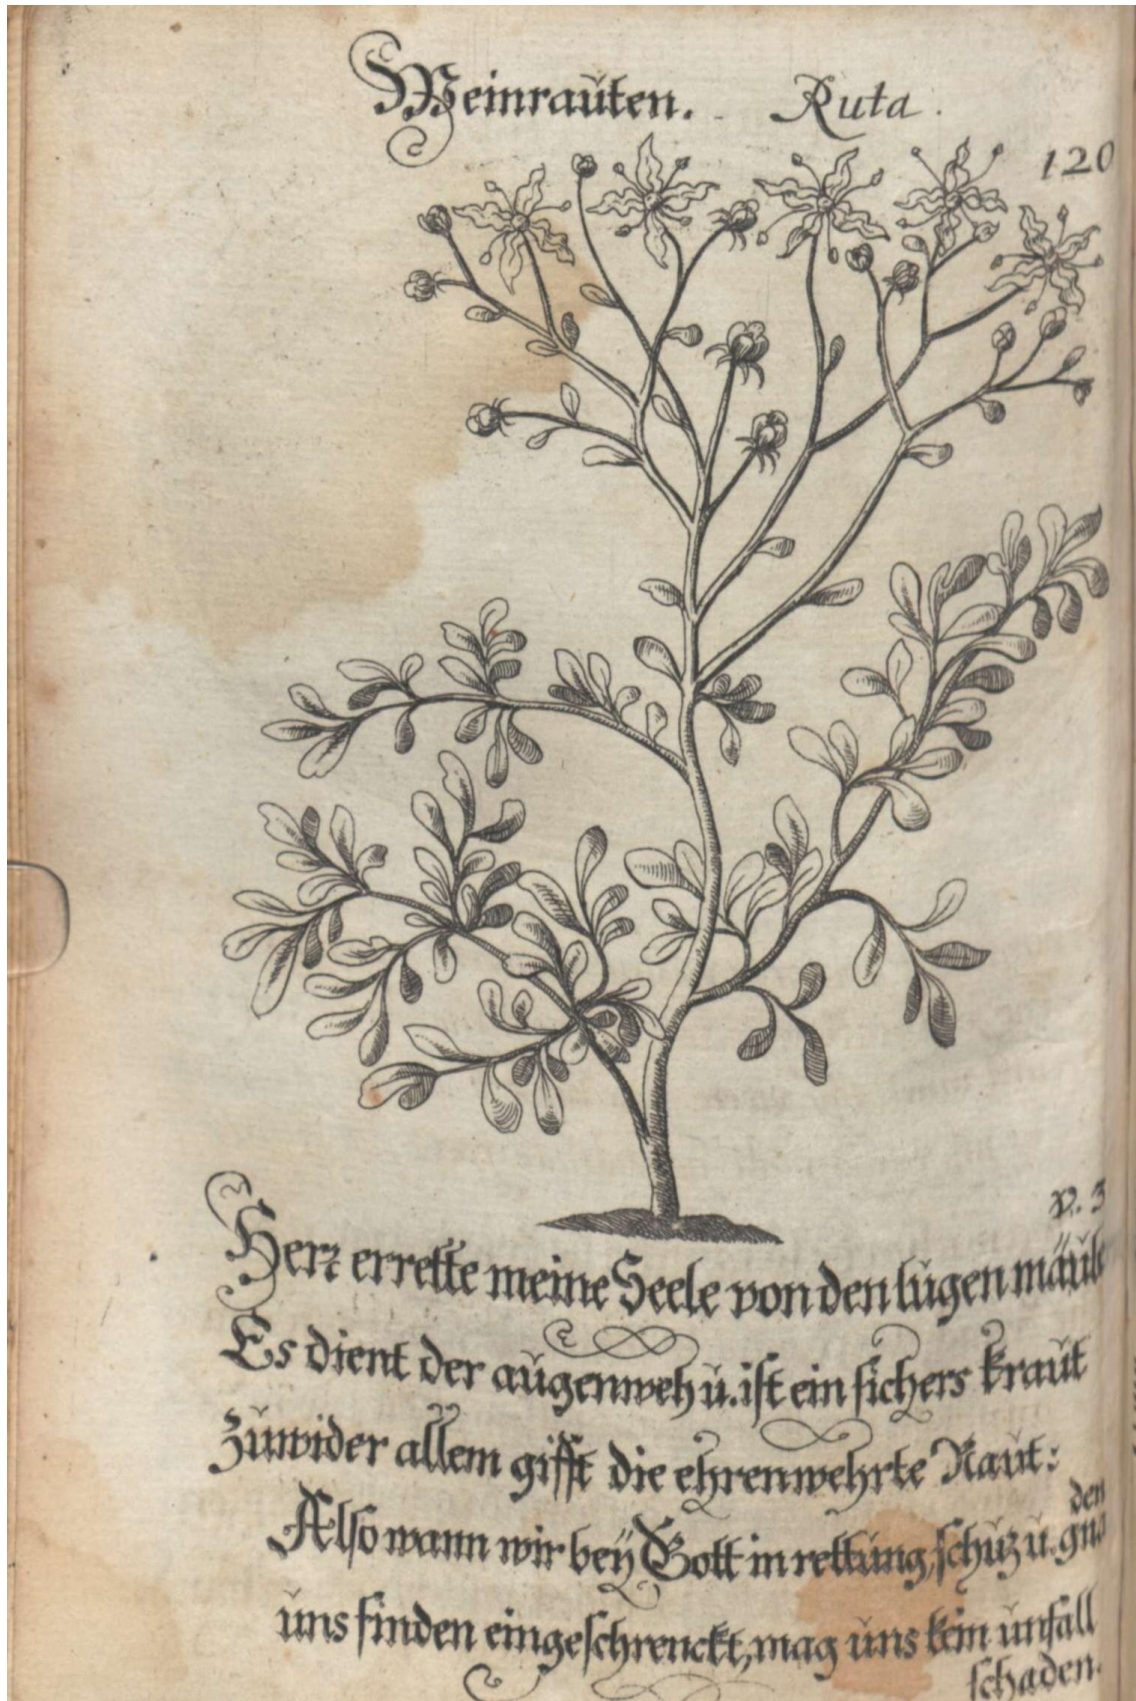 Weinraüten. Ruta.
120
v. 3
Herr errette meine Seele von den lügen
Es dient der aügenweh ü. ist ein sichers kraüt
Züwider allem gifft die ehrenwehrte Raüt:
Also wann wir beÿ Gott in rettüng, schüz ü. gna
den
üns finden eingeschrenckt, mag üns kein ünfall
schaden.